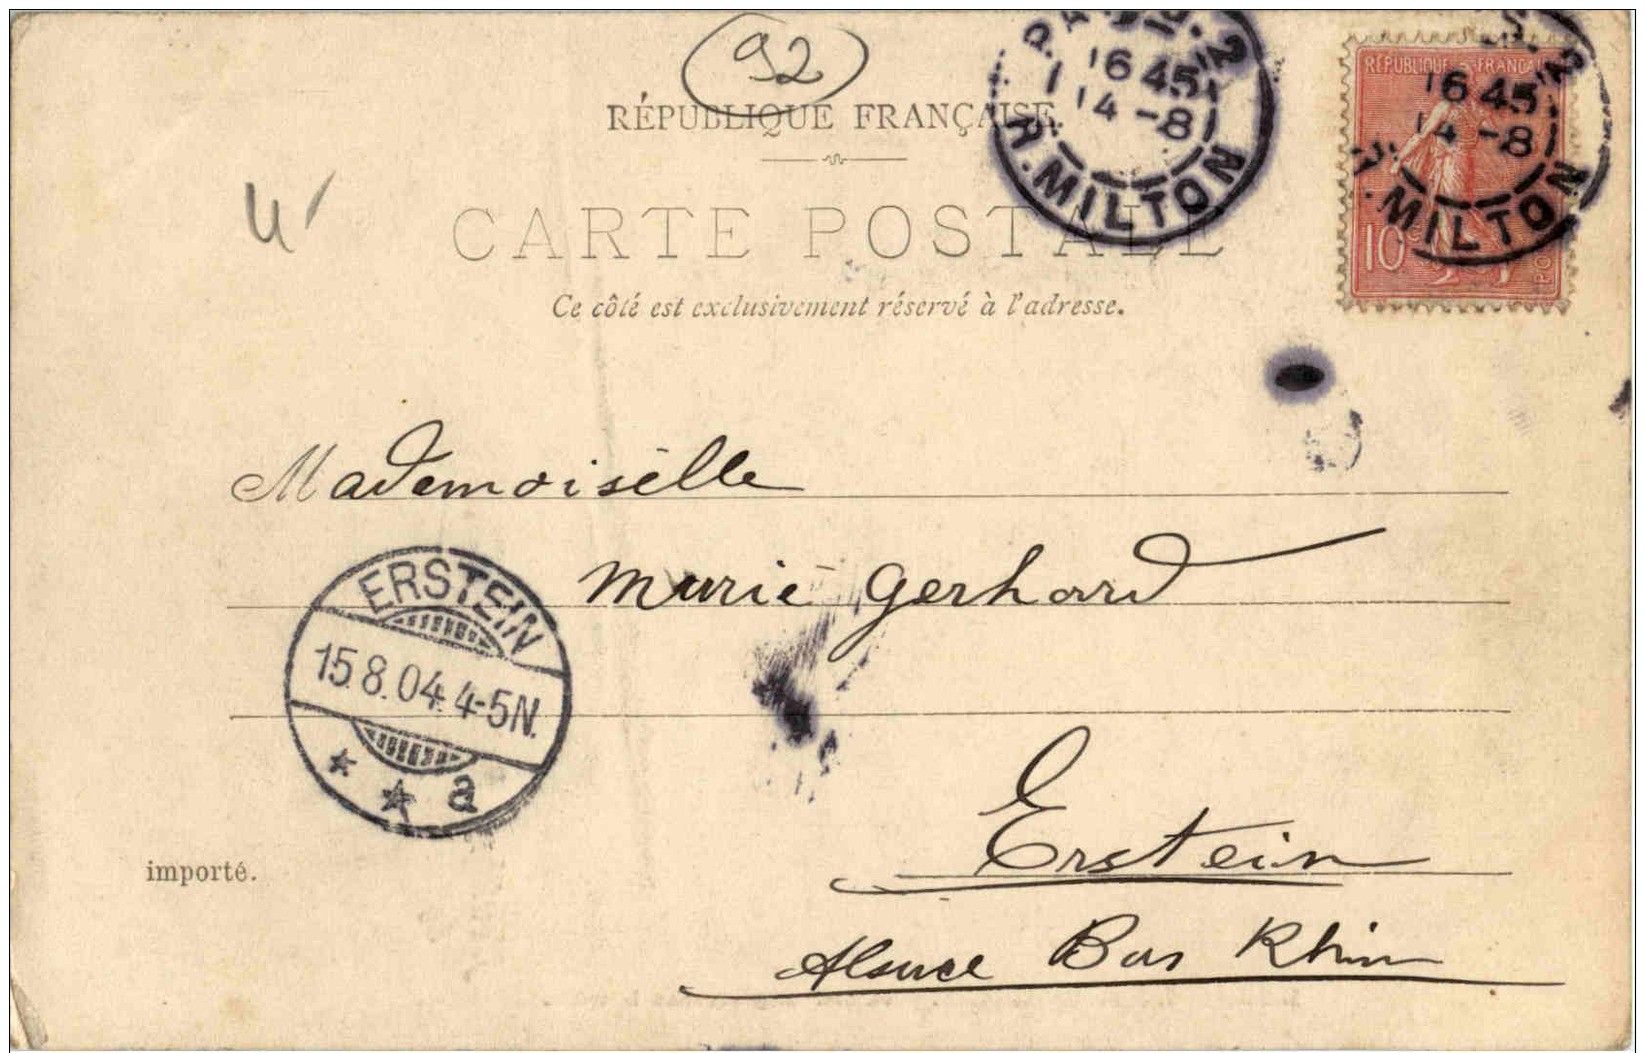 92
RÉPUBLIQUE FRANÇAISE
CARTE POSTALE
Ce côté est exclusivement réservé à l'adresse.
16 45
14 -8
R. MILTON
RÉPUBLIQUE FRANÇAI
16 45
14 -8
R. MILTON
10
Mademoiselle
Marie Gerhard
ERSTEIN
15.8.04. 4-5N.
a
Erstein
Alsace Bas Rhin
importé.